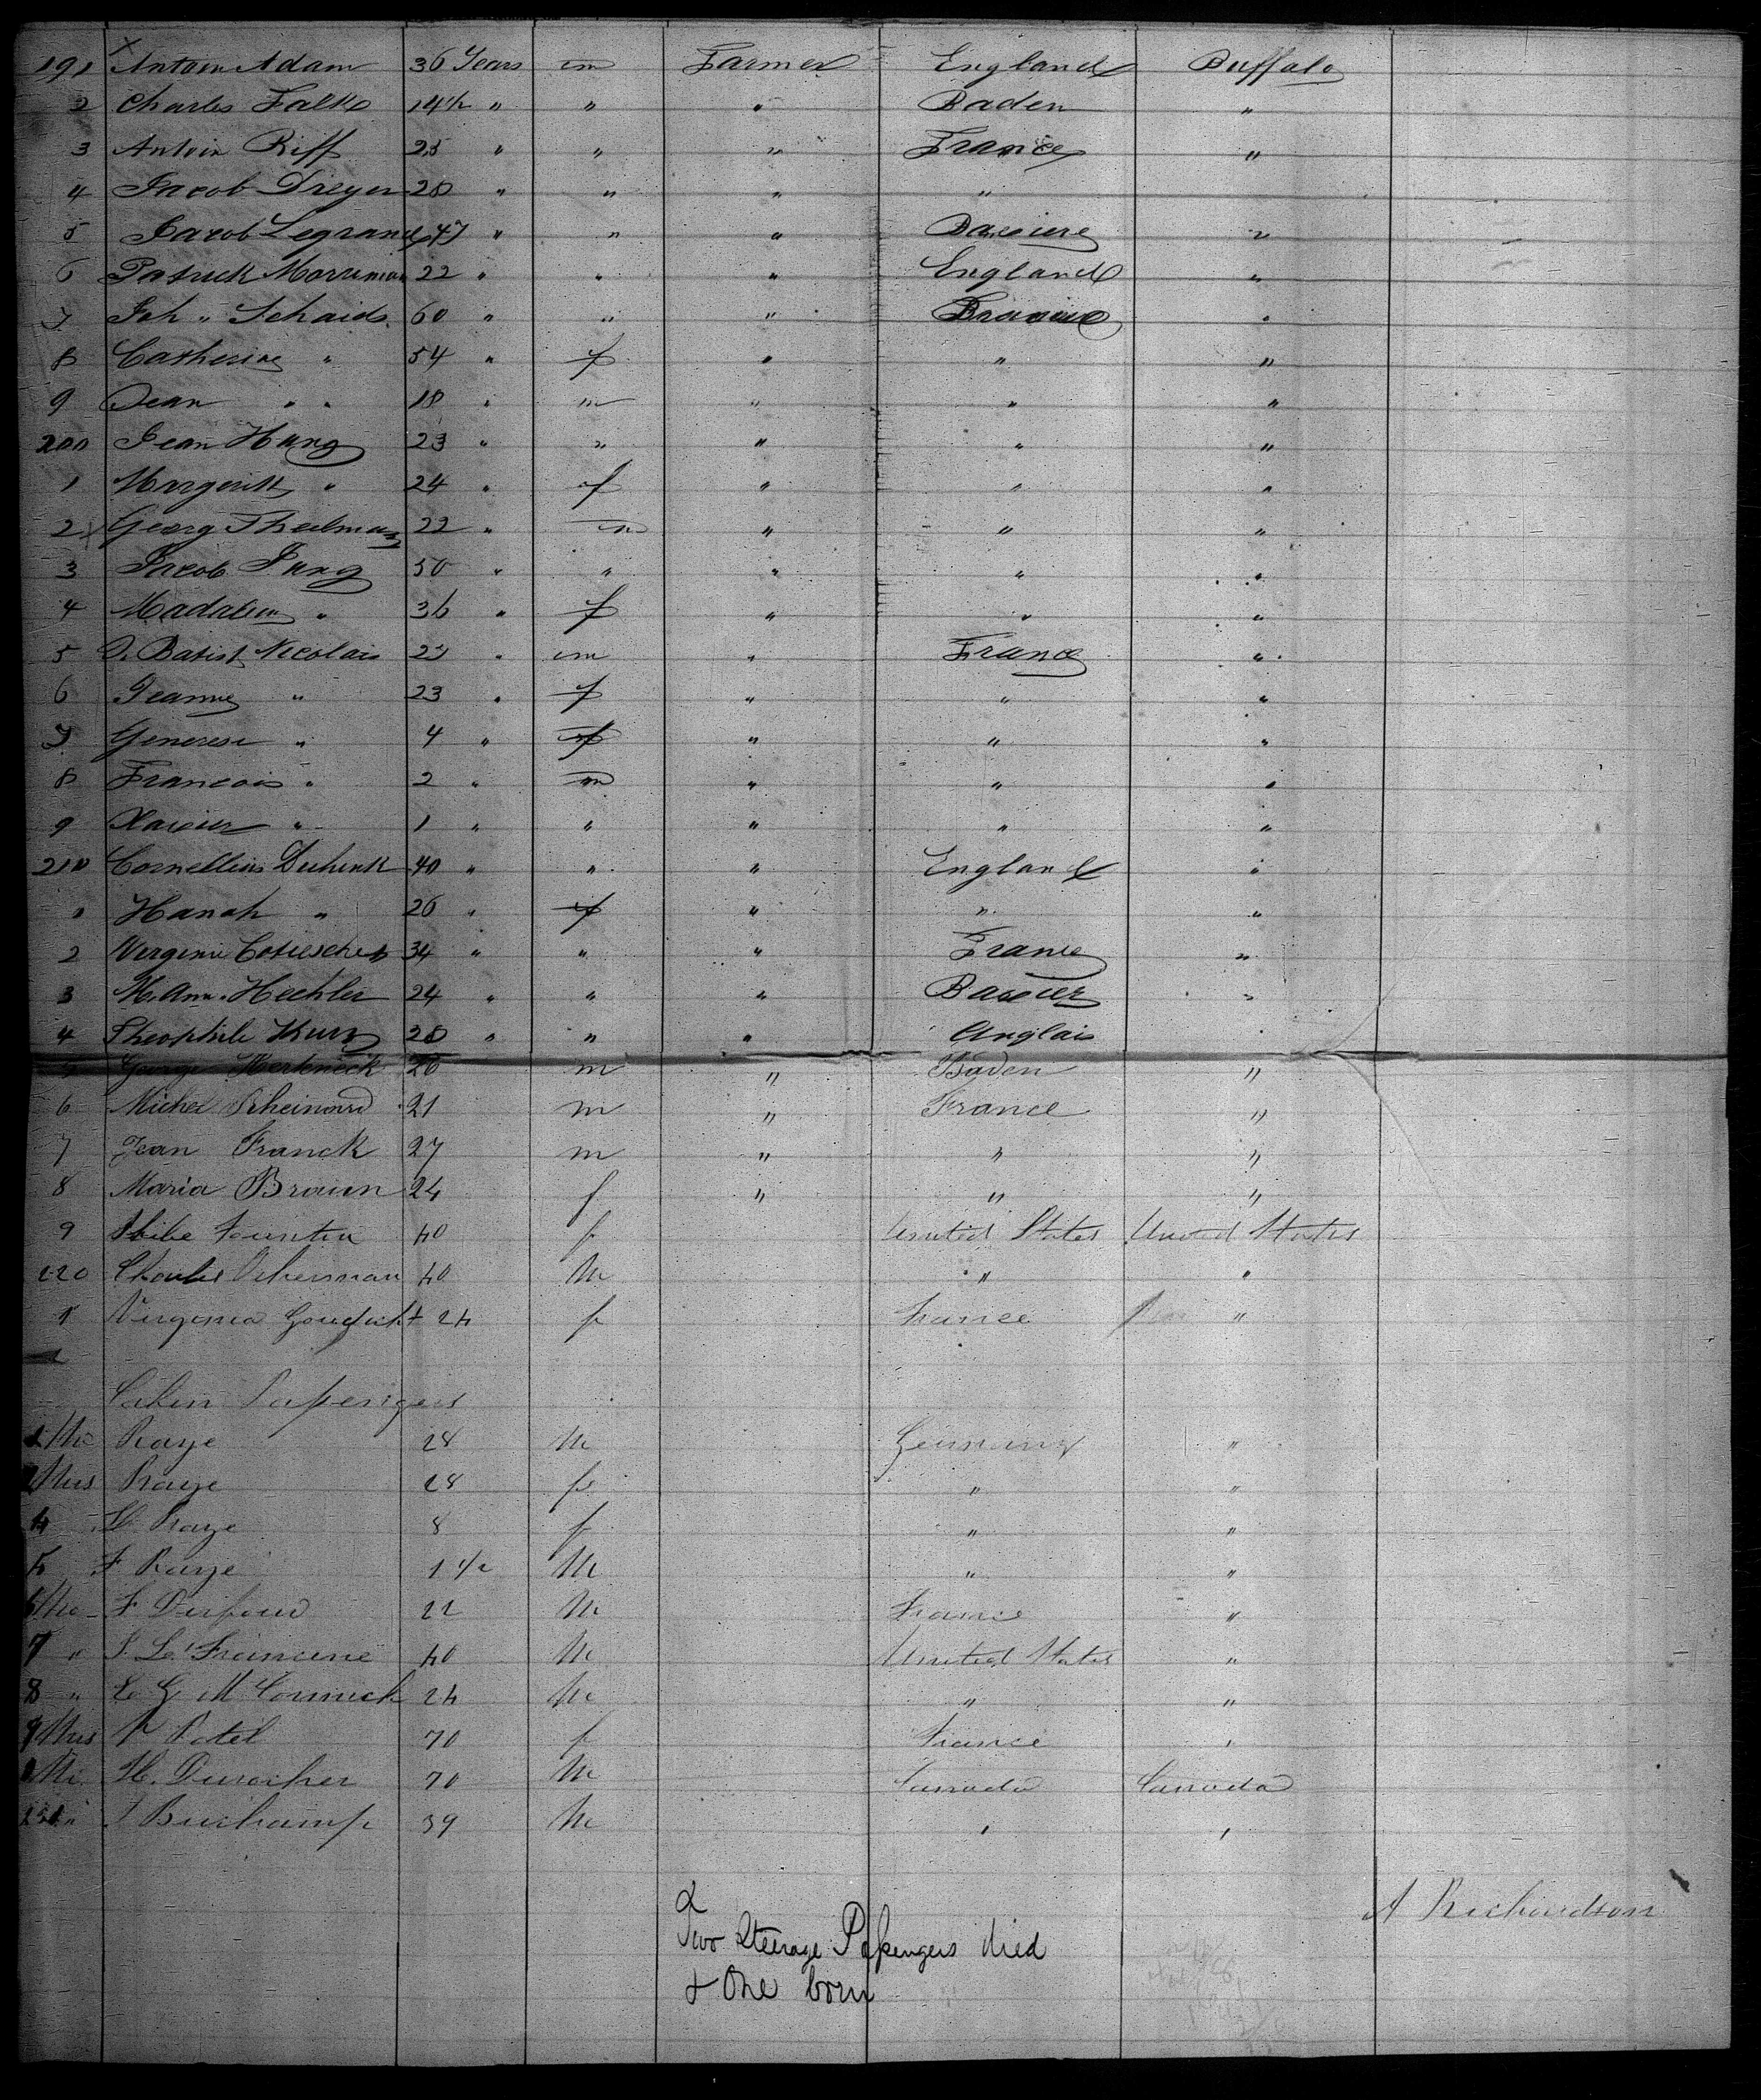 191 Antoin Adam 36 Years m Farmer England Buffalo
2 Charles Falk 14 1/2 " " " Baden "
3 Antoin Riff 25 " " " France "
4 Jacob Dreyer 28 " " " " "
5 Jacob Legrand 47 " " " Baviere "
6 Patrick Morriman 22 " " " England "
7 Joh " Schaids 60 " " " "
8 Catherine " 54 " f " " "
9 Jean " " 18 " m " " "
200 Jean Hung 23 " " " " "
1 Margerith " 24 " f " " "
2 Georg Theilman 22 " m " " "
3 Jacob Jung 50 " " " " "
4 Madalein " 36 " f " " "
5 J. Batist Nicolais 23 " m " France "
6 Jeanne " 23 " f " " "
7 Generese " 4 " f " " "
8 Francois " 2 " m " " "
9 Xavier " 1 " " " " "
210 Cornellius 40 " " " England "
1 Hanah " 26 " f " " "
2 Virginie 34 " " " France "
3 M. Ann. Hechler 24 " " " Bavier "
4 Theophile Kurz 28 " " " Anglais "
5 George 26 m " Baden "
6 Michel 21 m " France "
7 Jean Franck 27 m " " "
8 Maria Braun 24 f " " "
9 40 f United States United States
220 Charles Ackerman 40 M " "
1 Virginia 24 f France "
Cabin Passengers
Mr Raye 28 M Germany "
Mrs Raye 28 f " "
4 Raye 8 f " "
5 F Raye 1 1/2 M " "
6 Mr F Dufour 22 M France "
7 " S. Le Francine 40 M United States "
8 " L G McCormick 24 M " "
9 Mrs Patel 70 f France "
Mr H. Durocher 70 M Canada Canada
" Beuchamp 39 M " "
A Richardson
Two Steerage Passengers died
& One born